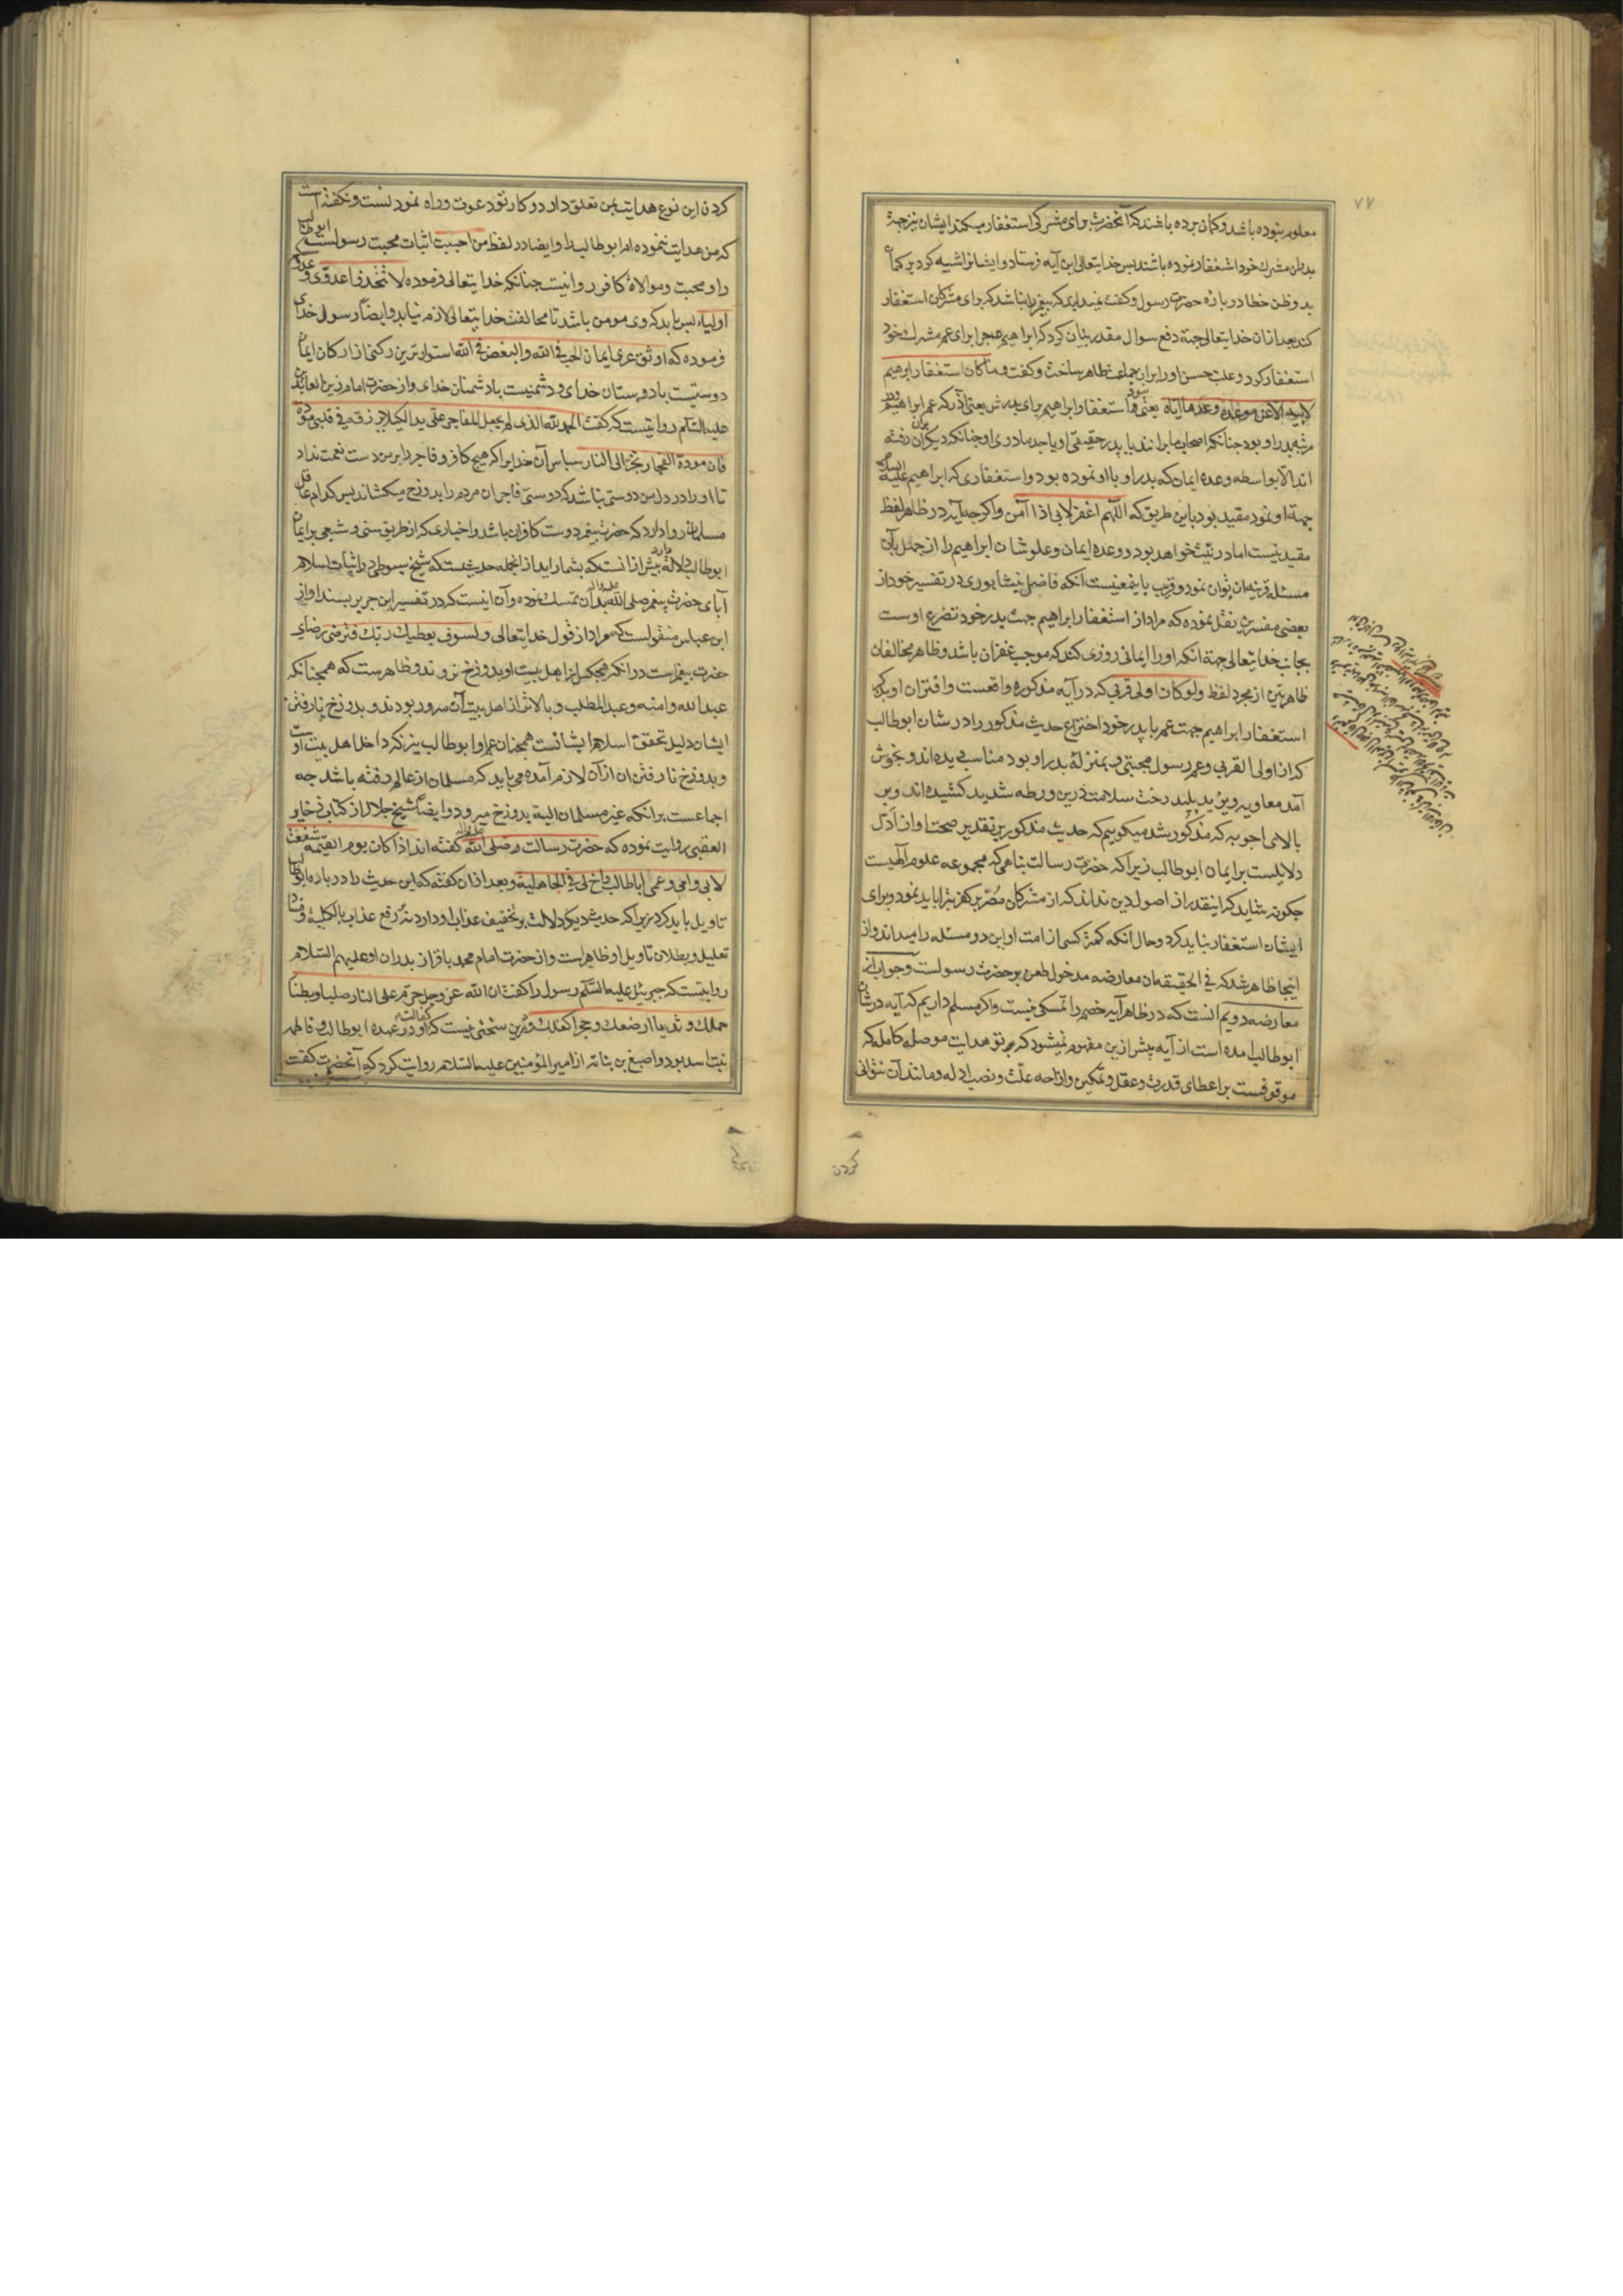 ۷۷
معلوم نبوده باشد و کمان برده باشند که آنحضرت برای مشرکی استغفار میکند ایشان نیز جهة
پدران مشرک خود استغفار نموده باشند پس خدایتعالی این آیه فرستاد و ایشانرا تنبیه کرد بر کمان
بد و ظن خطا در باره حضرت رسول و کفت نمیداند که پیغمبر را نباشد که برای مشرکان استغفار
کند بعد از ان خدایتعالی جهة دفع سوال مقدر بیان کرد که ابراهیم چرا برای عم مشرک خود
استغفار کرد و علت حسن او را بر ان جماعت ظاهر ساخت و کفت و ما کان استغفار ابرهیم
لابیه الا عن موعدة وعدها ایاه یعنی نبود استغفار ابراهیم برای پدرش یعنی آذر که عم ابراهیم و در
مرتبه پدر او بود چنانکه اصحاب ما برانند یا پدر حقیقی او یا جد مادری او چنانکه دیکران بران رفته
اند الا بواسطه وعده ایمان که پدر او با او نموده بود و استغفاری که ابراهیم علیه السلام
جهة او نمود مقید بود باین طریق که اللهم اغفر لابی اذا آمن و اکرچه آیه در ظاهر لفظ
مقید نیست اما در نیت خواهد بود و وعده ایمان و علو شان ابراهیم را از جهل بآن
مسئله قرینه ان توان نمود و قریب باینمعنیست انکه فاضل نیشابوری در تفسیر خود از
بعضی مفسرین نقل نموده که مراد از استغفار ابراهیم جهت پدر خود تضرع اوست
بجانب خدایتعالی جهة انکه او را ایمانی روزی کند که موجب غفران باشد و ظاهر مخالفان
ظاهربین از مجرد لفظ ولو کانوا اولی قربی که در آیه مذکوره واقعست و اقتران او بذکر
استغفار ابراهیم جهت عم یا پدر خود اختراع حدیث مذکور را در شان ابوطالب
که از اولی القربی و عم رسول مجتبی و بمنزلهٔ پدر او بود مناسب دیده اند و بخوش
آمد معاویه و یزید پلید رخت سلامت درین ورطه شدید کشیده اند و بر
بالای اجوبه که مذکور شد میکوییم که حدیث مذکور بر تقدیر صحت او از ادل
دلایلست بر ایمان ابوطالب زیرا که حضرت رسالت پناهی که مجموعه علوم الهیست
چکونه شاید که اینقدر از اصول دین نداند که از مشرکان مصر بر کفر تبرا باید نمود و برای
ایشان استغفار نباید کرد و حال آنکه کمتر کسی از امت او این دو مسئله را میداند و از
اینجا ظاهر شد که فی الحقیقه ان معارضه مدخول طعن بر حضرت رسولست و جواب از
معارضه دویم انست که در ظاهر آیه خصم را تمسکی نیست و اکر مسلم داریم که آیه در شان
ابوطالب امده است از آیه پیش ازین مفهوم نمیشود که بر تو هدایت موصلهٔ کامله که
موقوفست بر اعطای قدرت و عقل و تمکین و ازاحه علت و نصب ادله و مانند آن نتوانی
کردن
کردن این نوع هدایت بمن تعلق دارد و کار تو دعوت و راه نمودنست و نکفته است
که من هدایت ننموده ام ابوطالب را و ایضا در لفظ من احببت اثبات محبت رسولست ابوطالب
را و محبت و موالاة کافر روا نیست چنانکه خدایتعالی فرموده لا تتخذوا عدوی و عدوکم
اولیاء پس باید که وی مومن باشد تا مخالفت خدایتعالی لازم نیاید و ایضاً رسول خدای
فرموده که اوثق عری ایمان الحب فی الله والبغض فی الله استوارترین رکنی از ارکان ایمان
دوستیست با دوستان خدای و دشمنیست با دشمنان خدای و از حضرت امام زین العابدین
علیه السلم روایتست که کفت الحمد لله الذی لم یجعل للفاجر علی یداً لکیلا یرزقه فی قلبی مودة
فان مودة الفجار تجر الی النار سپاس آن خدایرا که هیچ کافر و فاجر را بر من دست نعمت نداد
تا او را در دل من دوستی نباشد که دوستی فاجران مردم را بدوزخ میکشاند پس کدام عاقل
مسلمان روا دارد که حضرت پیغمبر دوست کافران باشد و اخباری که از طریق سنی و شیعی بر ایمان
ابوطالب دلالة دارد بیش از انست که بشمار اید از انجمله حدیثیست که شیخ سیوطی در اثبات اسلام
آبای حضرت پیغمبر صلی الله علیه واله بدان تمسک نموده و آن اینست که در تفسیر ابن جریر بسند او از
ابن عباس منقولست که مراد از قول خدایتعالی و لسوف یعطیک ربک فترضی رضای
حضرت پیغمبرست در انکه هیچکس از اهل بیت او بدوزخ نروند و ظاهرست که همچنانکه
عبدالله و امنه و عبدالمطلب و بالاتر از اهل بیت آن سرور بودند و بدوزخ نارفتن
ایشان دلیل تحقق اسلام ایشانست همچنان عم او ابوطالب نیز که داخل اهل بیت اوست
و بدوزخ نارفتن ان از آن لازم آمده می باید که مسلمان از عالم رفته باشد چه
اجماعست بر انکه غیر مسلمان البته بدوزخ میرود و ایضاً شیخ جلال از کتاب ذخایر
العقبی روایت نموده که حضرت رسالت صلی الله علیه واله کفته اند اذا کان یوم القیمه شفعت
لابی و امی و عمی اباطالب و اخ لی فی الجاهلیة و بعد از ان کفته که این حدیث را در باره ابوطالب
تاویل باید کرد زیرا که حدیث دیکر دلالت بر تخفیف عذاب او دارد نه بر رفع عذاب بالکلیة و فساد
تعلیل و بطلان تاویل او ظاهراست و از حضرت امام محمد باقر از پدران او علیهم السلام
روایتست که جبرئیل علیه السلم رسول را کفت ان الله عز وجل حرم علی النار صلبا و بطنا
حملک و ثدیا ارضعک و حجرا کفلک و درین سخنی نیست که کفالت او در عهده ابوطالب و فاطمه
بنت اسد بود و اصبغ بن نباته از امیر المؤمنین علیه السلام روایت کرد که آنحضرت کفت